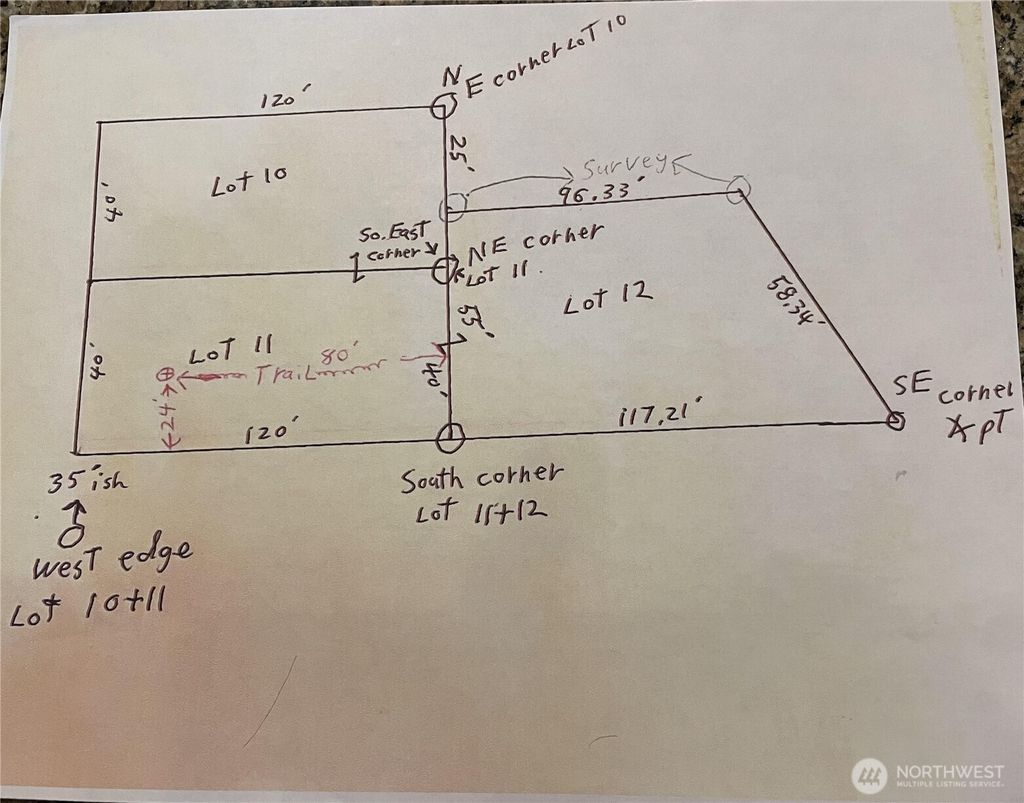 N
E corner LOT 10
120'
25'
Lot 10
40'
Survey
96.33'
So. East
corner
NE corner
LOT 11.
Lot 12
55'
58.34'
LOT 11
80'
Trail
40'
40'
24'
120'
117,21'
SE corner
pT
35'ish
South corner
LOT 11+12
West edge
Lot 10+11
NORTHWEST
MULTIPLE LISTING SERVICE